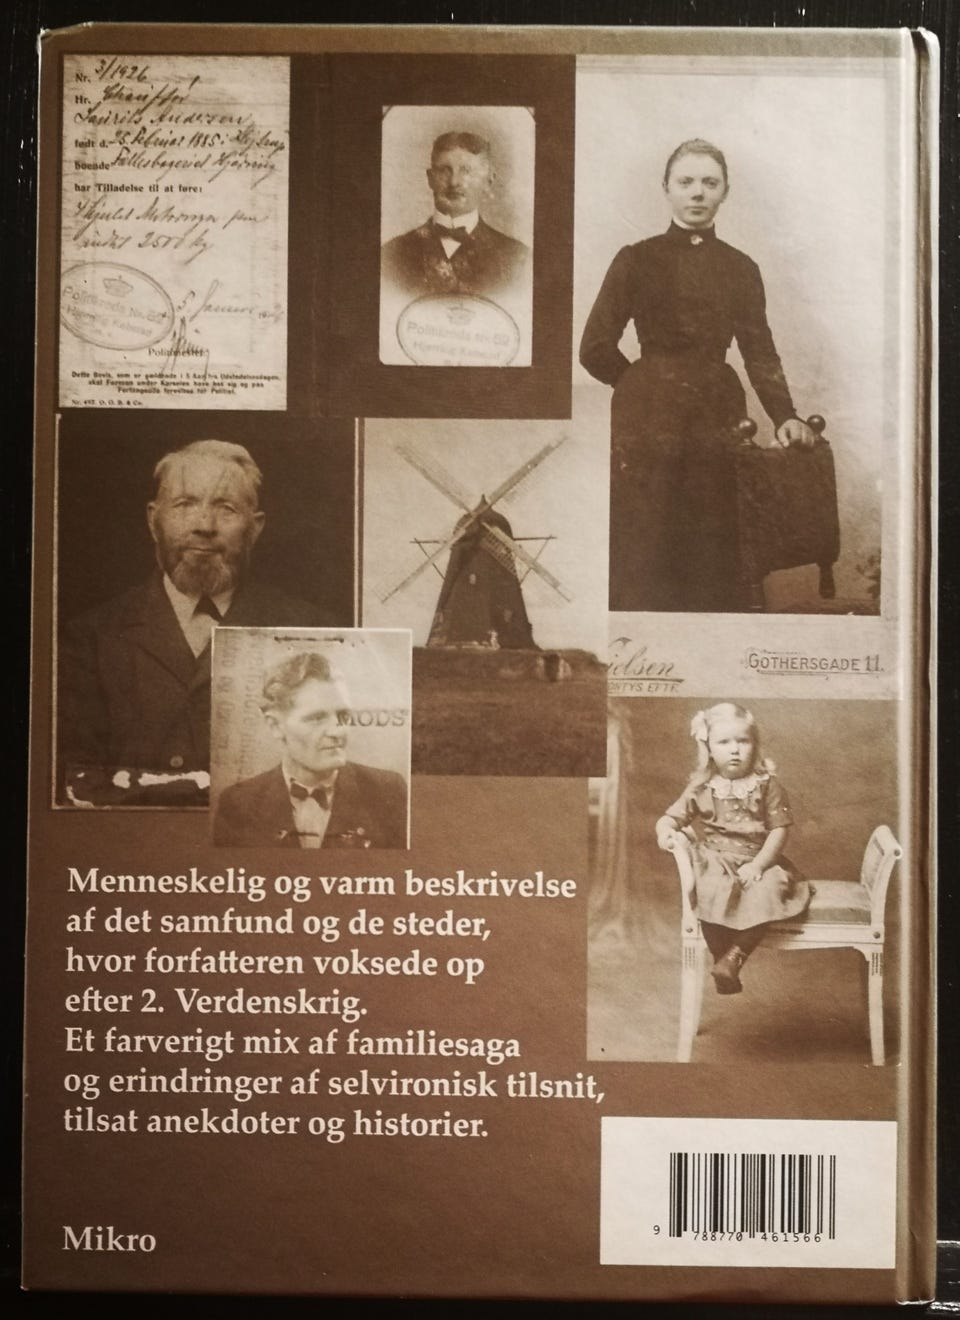 Nr. 3/1926
Hr. Chauffør
Laurits Andersen
født d. 25. Februar 1885 i
boende Fællesbageriet Hjørring
har Tilladelse til at føre:
2500 kg
Politikreds Nr. 52
Hjørring Købstad
5 Januar
Politimester
Dette Bevis, som er gældende i 5 Aar fra Udstedelsesdagen,
skal Føreren under Kørselen have hos sig og paa
Forlangende forevises for Politiet.
Politikreds Nr. 52
Hjørring Købstad
GOTHERSGADE 11.
MODS
Menneskelig og varm beskrivelse
af det samfund og de steder,
hvor forfatteren voksede op
efter 2. Verdenskrig.
Et farverigt mix af familiesaga
og erindringer af selvironisk tilsnit,
tilsat anekdoter og historier.
Mikro
9 788770 461566